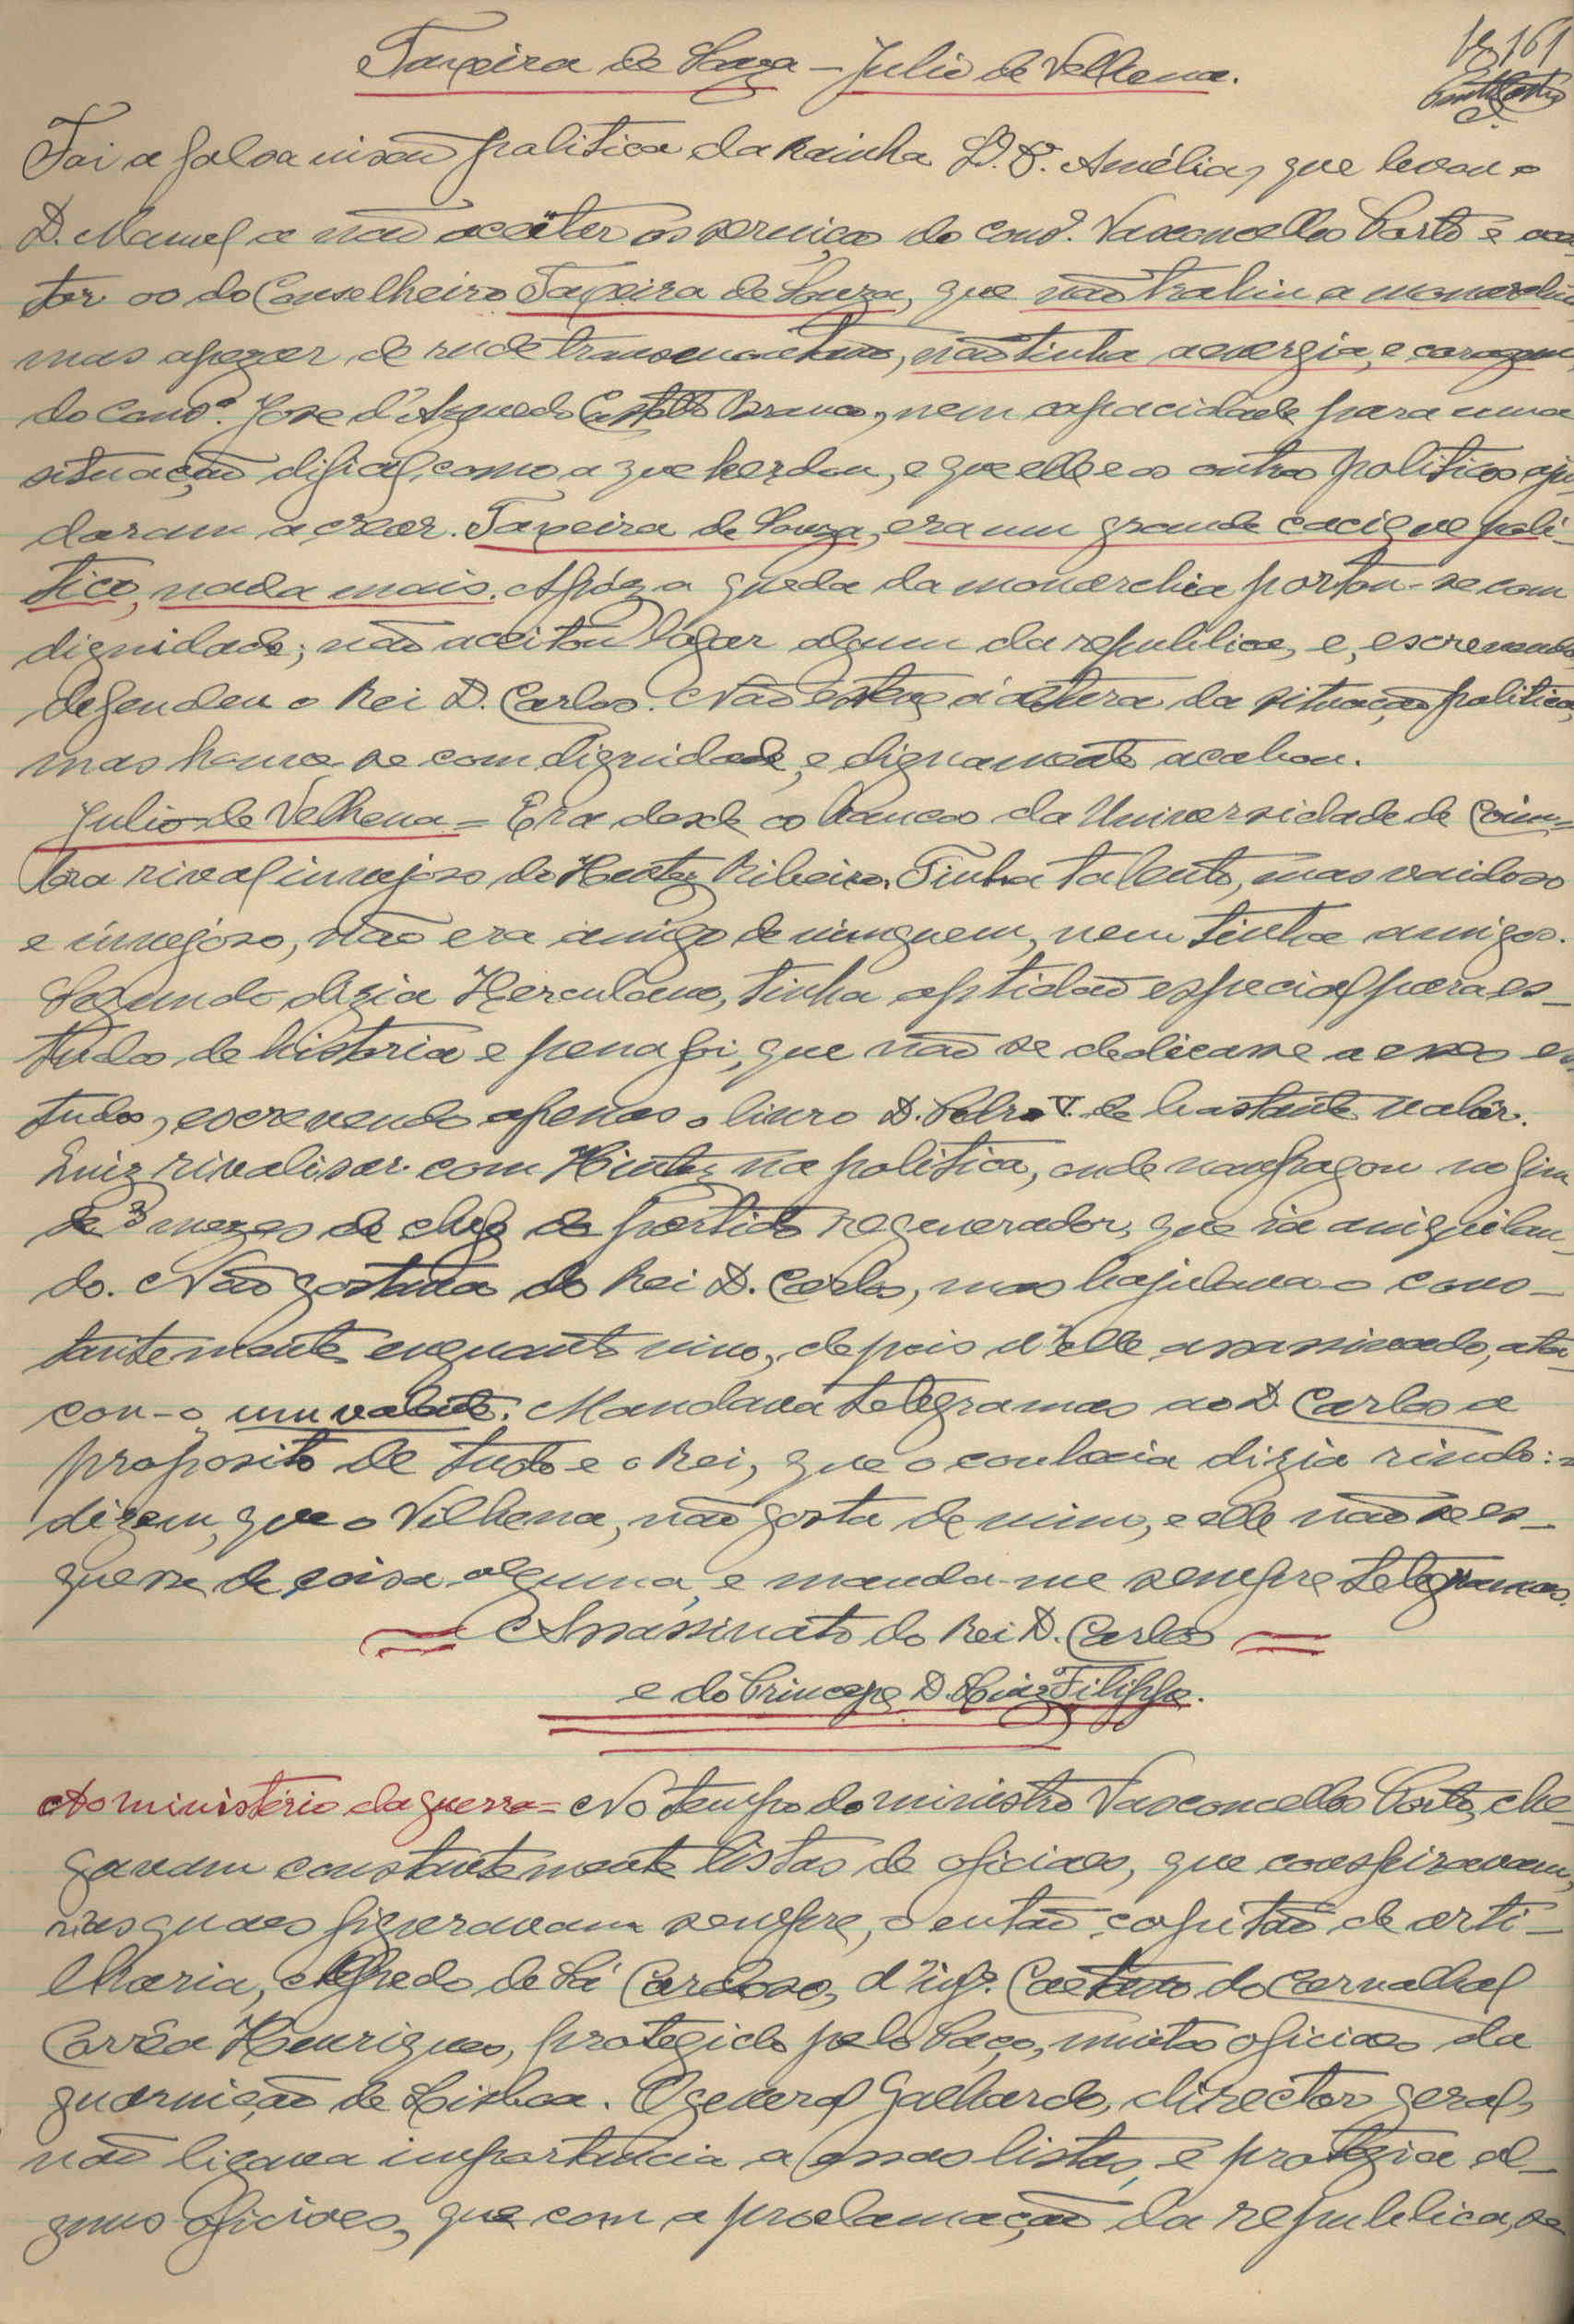 Teixeira de Souza – Julio de Vilhena.
161
Foi a falsa visão politica da Rainha D. Amélia, que levou o
D. Manuel a não aceitar os serviços do cons.º Vasconcellos Porto e acei
tar os do Conselheiro Teixeira de Souza, que não trahiu a monarchia
mas apezar de rude transmontano, não tinha a energia, e coragem
do cons.º Jose d'Azevedo Castello Branco, nem capacidade para uma
situação dificil, como a que herdou, e que elle e os outros politicos aju-
daram a crear. Teixeira de Souza, era um grande cacique poli-
tico, nada mais. Após a queda da monarchia portou-se com
dignidade; não aceitou logar algum da republica, e, escrevendo
defendeu o Rei D. Carlos. Não esteve á altura da situação politica,
mas houve-se com dignidade, e dignamente acabou.
Julio de Vilhena = Era desde os bancos da Universidade de Coim-
bra rival invejoso do Hintze Ribeiro. Tinha talento, mas vaidoso
e invejoso, não era amigo de ninguem, nem tinha amigos.
Segundo dizia Herculano, tinha aptidão especial para es-
tudos de historia e pena foi, que não se dedicasse a esses es
tudos, escrevendo apenas o livro D. Pedro V. de bastante valôr.
Quiz rivalisar com Hintze na politica, onde naufragou no fim
de 3 mezes de chefe do partido regenerador, que ia aniquilan-
do. Não gostava do Rei D. Carlos, mas bajulava-o cons-
tantemente enquanto vivo, depois d'elle assassinado, ata-
cou-o, um valente. Mandava telegramas ao D. Carlos a
proposito de tudo e o Rei, que o conhecia dizia rindo:=
dizem, que o Vilhena, não gosta de mim, e elle não se es-
quesse de coisa alguma, e manda-me sempre telegramas.
= Assassinato do Rei D. Carlos =
e do Principe D. Luiz Filippe.
Ao ministério da guerra = No tempo do ministro Vasconcellos Porto, che-
gavam constantemente listas de oficiaes, que conspiravam,
nas quaes figuravam sempre, o então capitão de arti-
lharia, Alfredo de Sá Cardoso, d'inf.ª Caetano do Carvalhal
Corrêa Henriques, protegido pelo Paço, muitos oficiaes da
guarnição de Lisboa. O general Galhardo, director geral,
não ligava importancia a essas listas, e protegia al-
guns oficiaes, que com a proclamação da republica, se